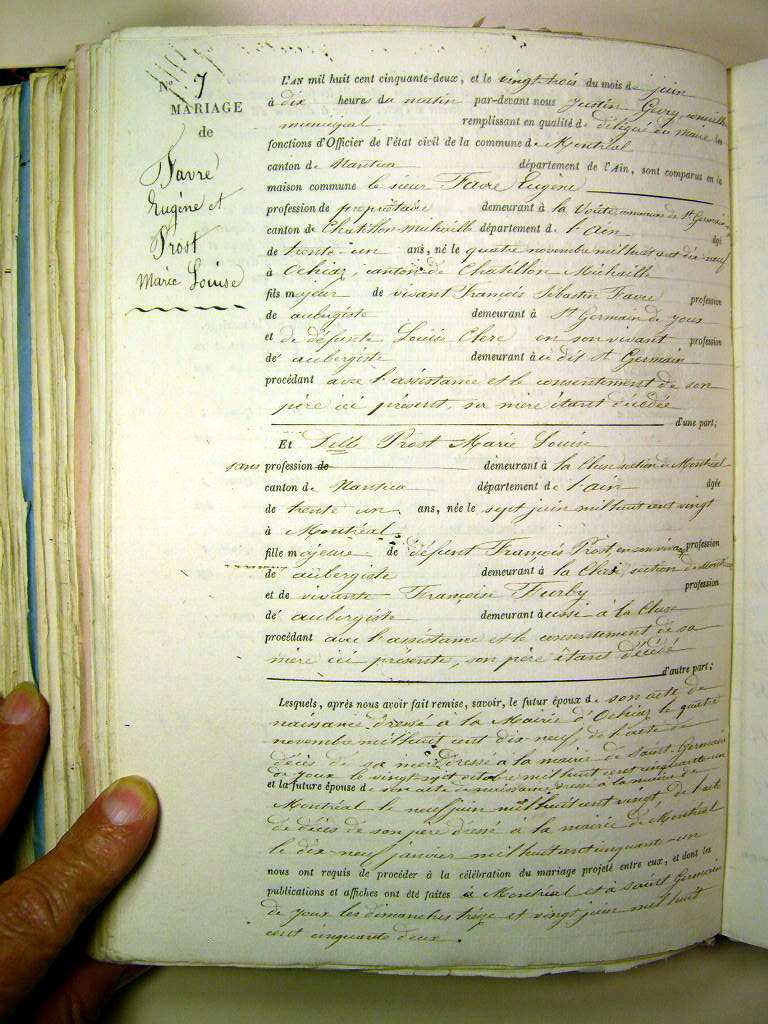 N° 7
MARIAGE
de
Favre
Eugène et
Prost
Marie Louise
L'AN mil huit cent cinquante-deux, et le vingt trois du mois de juin
à dix heures du matin par-devant nous Justin Gory conseiller
municipal remplissant en qualité de délégué du maire les
fonctions d'Officier de l'état civil de la commune de Montréal
canton de Nantua département de l'Ain, sont comparus en la
maison commune le sieur Favre Eugène
profession de propriétaire demeurant à la Voute commune de St Germain
canton de Chatillon michaille département de l'ain âgé
de trente-un ans, né le quatre novembre mil huit cent dix-neuf
à Ochiaz, canton de Chatillon Michaille
fils majeur de vivant François Sébastin Favre profession
de aubergiste demeurant à St Germain de joux
et de défunte Louise Clerc en son vivant profession
de aubergiste demeurant à u dit St Germain
procédant avec l'assistance et le consentement de son
père ici présent, sa mère étant décédée
d'une part;
Et Delle Prost Marie Louise
sans profession de demeurant à la Cluse section de Montréal
canton de Nantua département de l'ain âgée
de trente un ans, née le sept juin mil huit cent vingt
à Montréal
fille majeure de défunt François Prost, en son vivant profession
de aubergiste demeurant à la Cluse section de Montréal
et de vivante Françoise Furby profession
de aubergiste demeurant aussi à la Cluse
procédant avec l'assistance et le consentement de sa
mère ici présente, son père étant décédé
d'autre part;
Lesquels, après nous avoir fait remise, savoir, le futur époux de son acte de
naissance dressé à la Mairie d'Ochiaz le quatre
novembre mil huit cent dix neuf, de l'acte de
décès de sa mère dressé à la mairie de Saint-Germain
de joux le vingt sept octobre mil huit cent cinquante un
et la future épouse de son acte de naissance dressé à la mairie de
Montréal le neuf juin mil huit cent vingt, de l'acte
de décès de son père dressé à la mairie de Montréal
le dix-neuf janvier mil huit cent cinquante-un
nous ont requis de procéder à la célébration du mariage projeté entre eux, et dont les
publications et affiches ont été faites à Montréal et à Saint Germain
de joux les dimanches treize et vingt juin mil huit
cent cinquante deux.